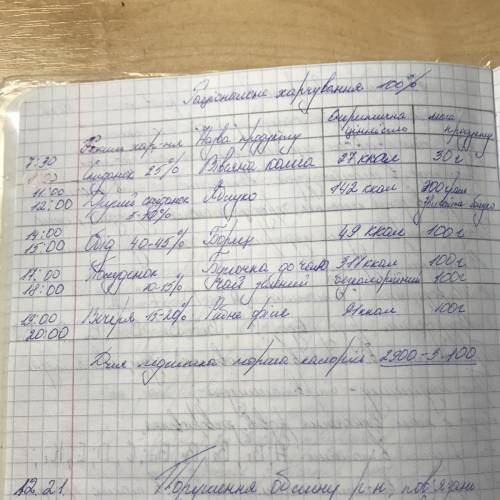 Раціональне харчування 100%
Режим хар-ня Назва продукту Енергетична цінність маса продукту
7:30
8:00 Сніданок 25% Вівсяна каша 27 ккал 30 г
11:00
12:00 Другий сніданок 5-10% Яблуко 142 ккал 200 грам
14:00
15:00 Обід 40-45% Борщ 49 ккал 100 г
17:00 Полуденок Булочка до чаю ккал 100 г
18:00 10-15% Чай безкалорійний 100 г
19:00 Вечеря 15-20% Рибне філе 91 ккал 100 г
20:00
Для підлітка норма калорій 2900-3.100
12.21. Порушення обміну р-н, пов'язані